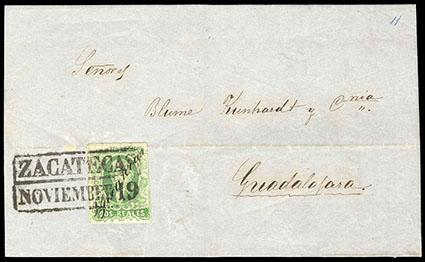 11
Señores
Blume Kunhardt y Cnia
Guadalajara.
ZACATECAS
NOVIEMBRE 19
DOS REALES